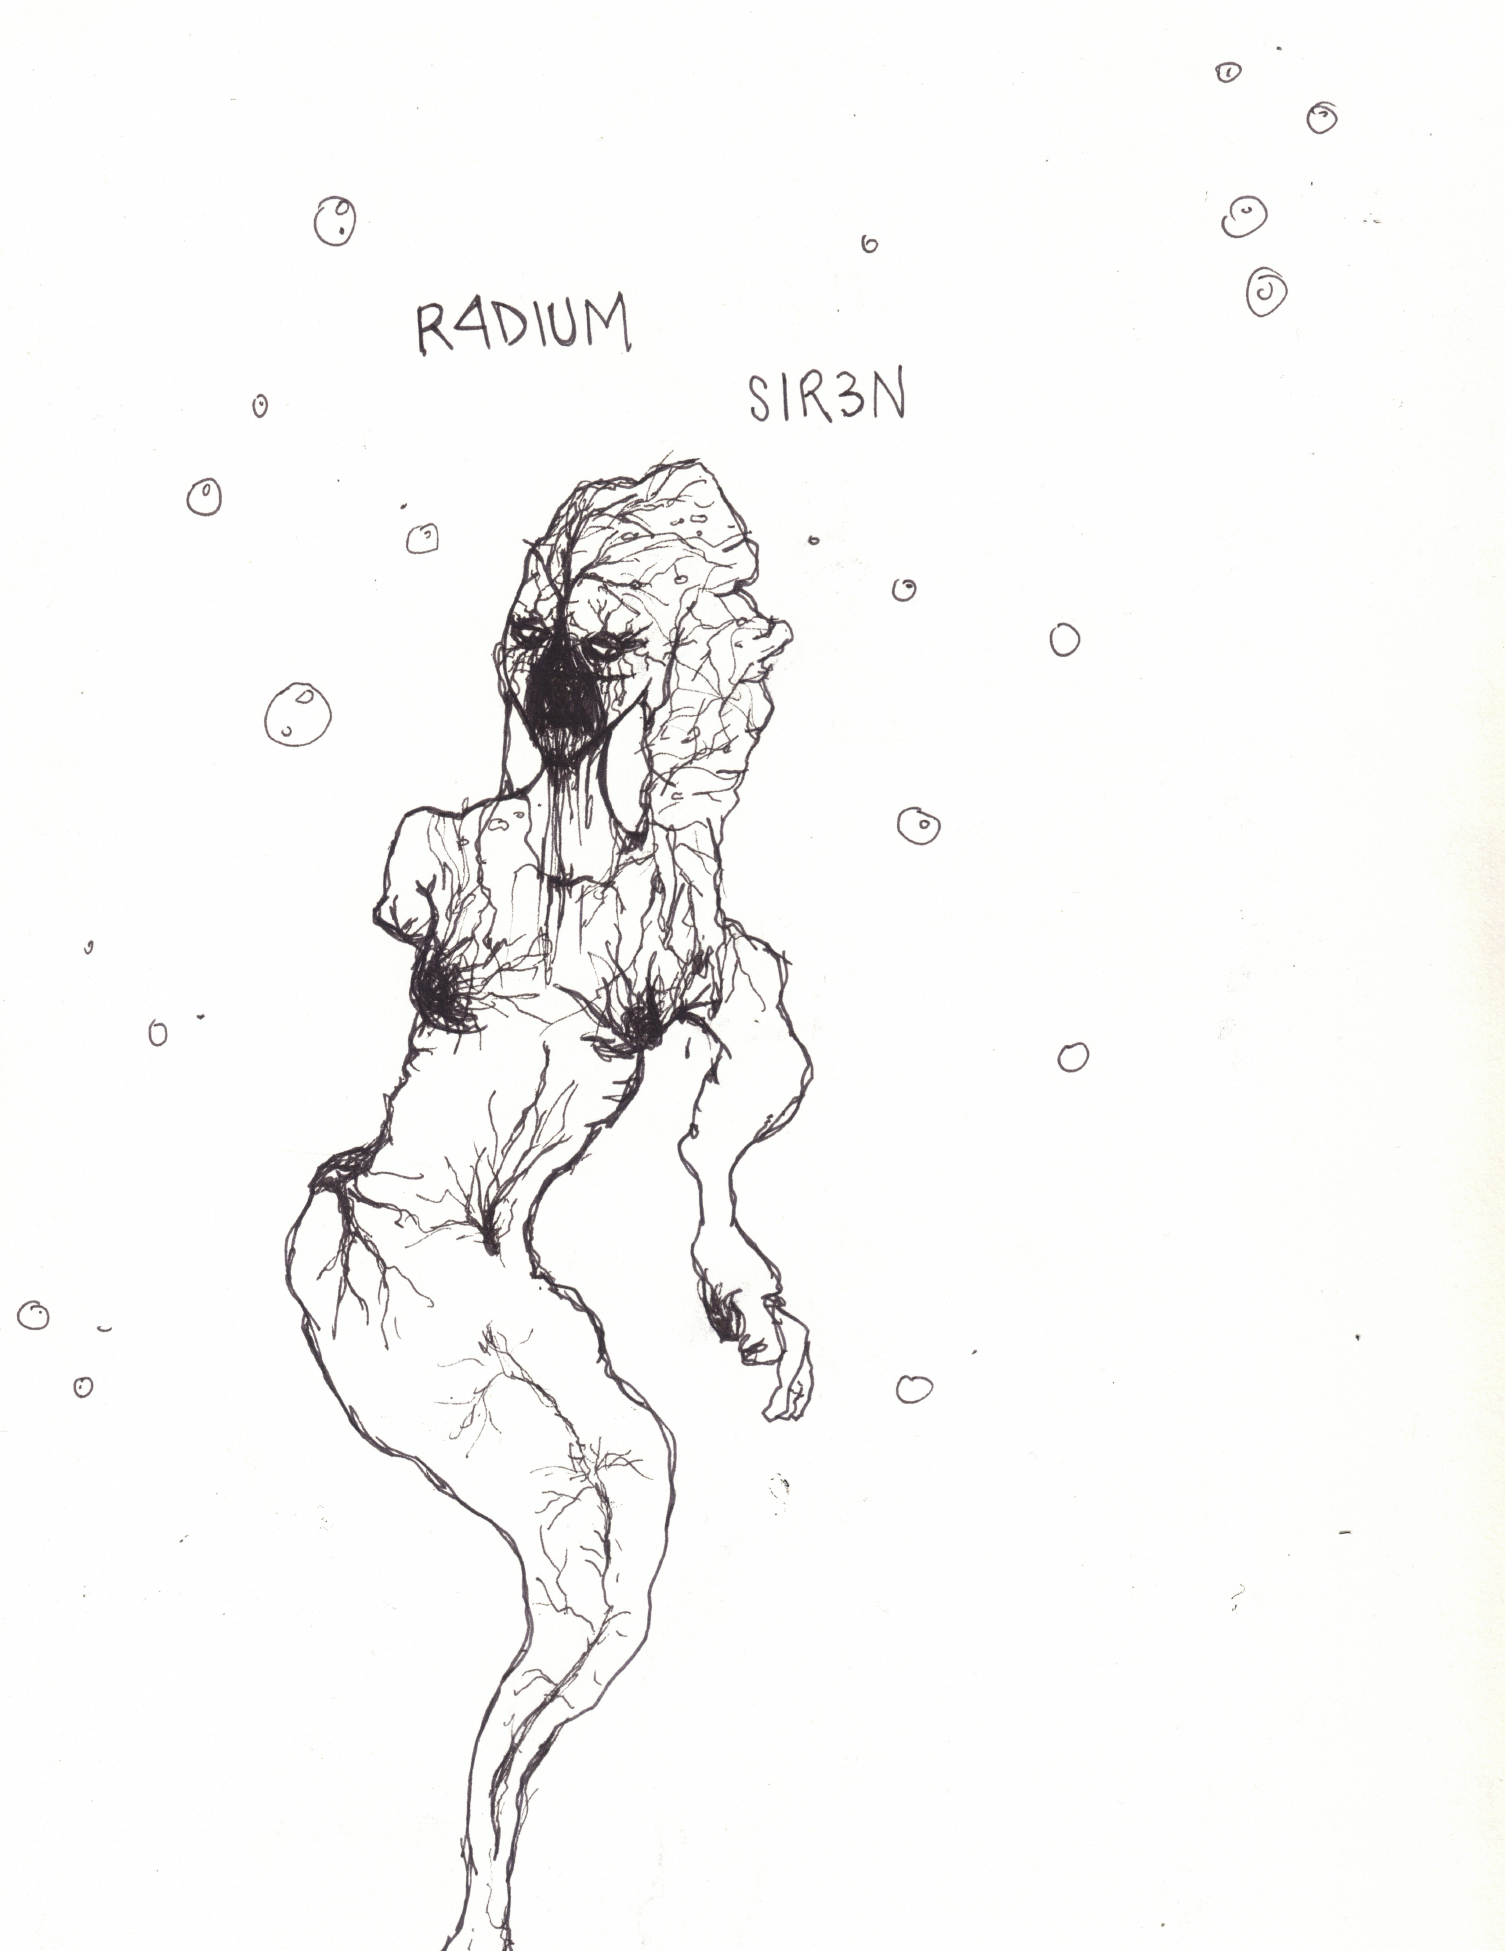 R4DIUM
SIR3N